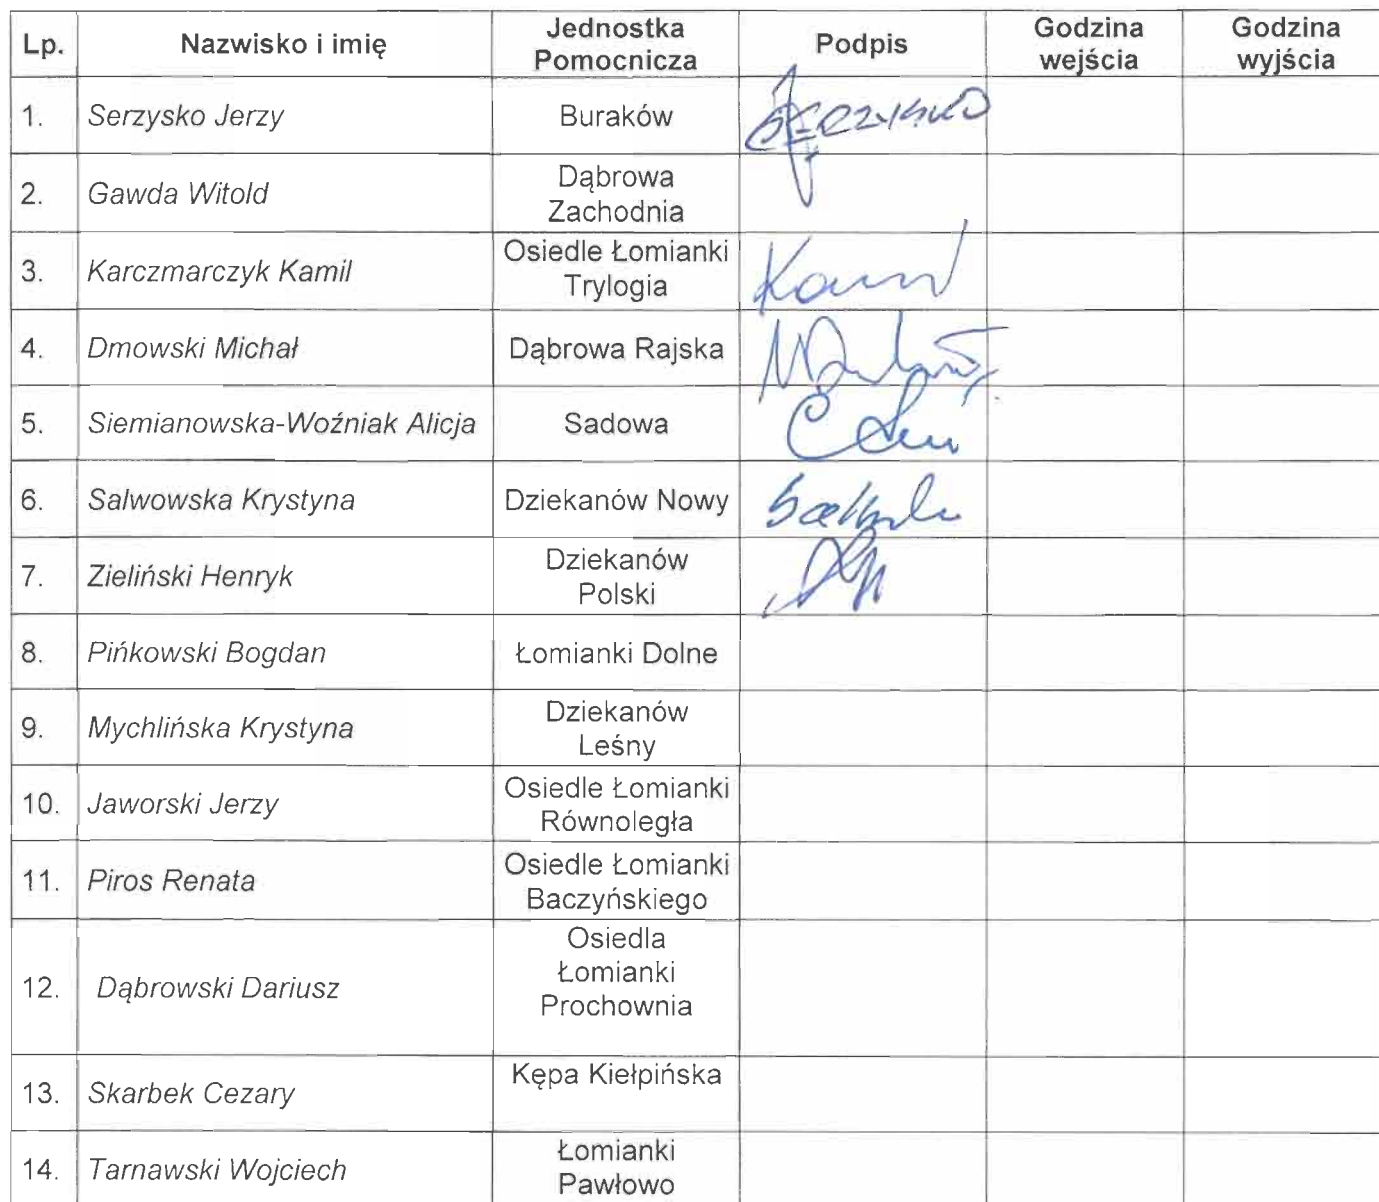 Lp. Nazwisko i imię Jednostka Pomocnicza Podpis Godzina wejścia Godzina wyjścia
1. Serzysko Jerzy Buraków Serzysko
2. Gawda Witold Dąbrowa Zachodnia
3. Karczmarczyk Kamil Osiedle Łomianki Trylogia
4. Dmowski Michał Dąbrowa Rajska
5. Siemianowska-Woźniak Alicja Sadowa
6. Salwowska Krystyna Dziekanów Nowy
7. Zieliński Henryk Dziekanów Polski
8. Pińkowski Bogdan Łomianki Dolne
9. Mychlińska Krystyna Dziekanów Leśny
10. Jaworski Jerzy Osiedle Łomianki Równoległa
11. Piros Renata Osiedle Łomianki Baczyńskiego
12. Dąbrowski Dariusz Osiedla Łomianki Prochownia
13. Skarbek Cezary Kępa Kiełpińska
14. Tarnawski Wojciech Łomianki Pawłowo